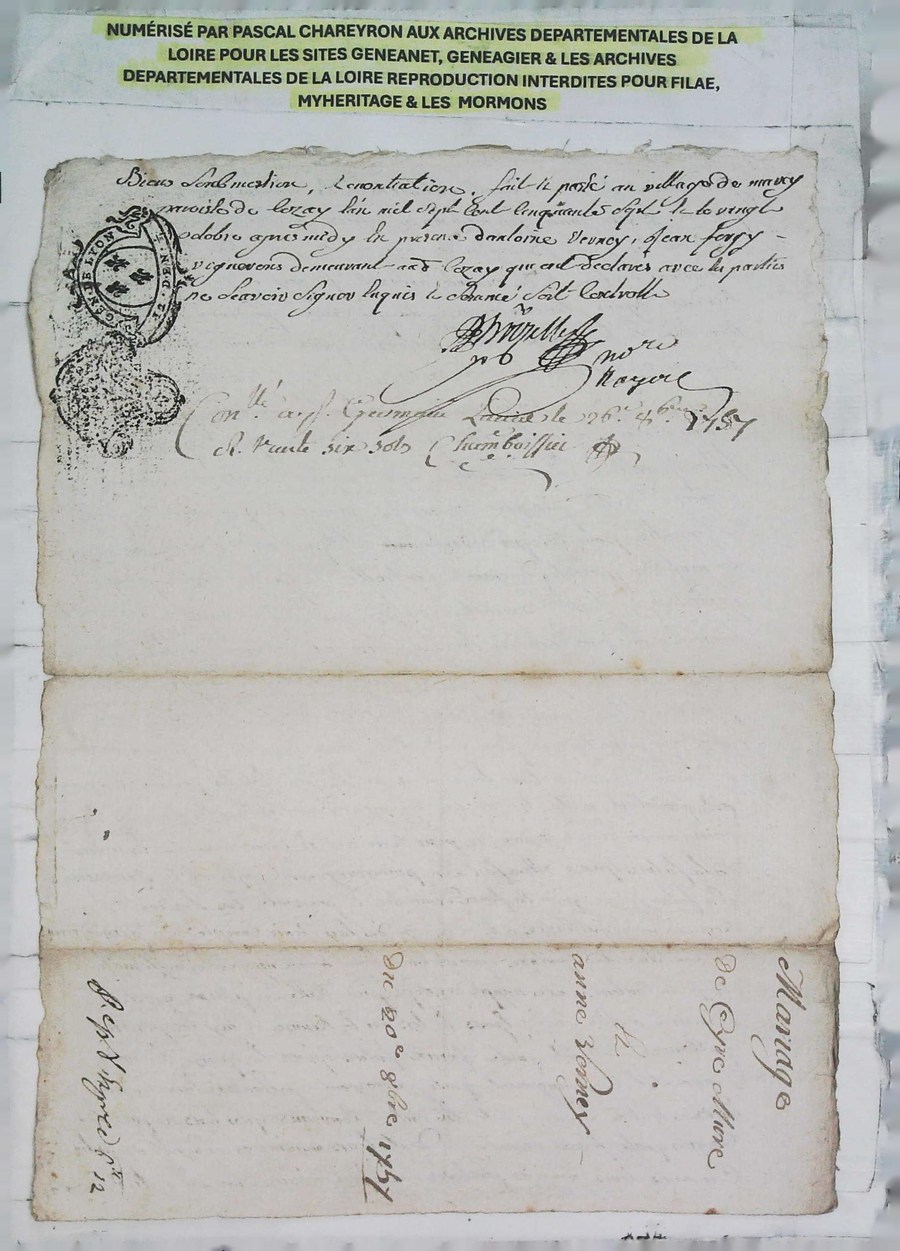 NUMÉRISÉ PAR PASCAL CHAREYRON AUX ARCHIVES DEPARTEMENTALES DE LA
LOIRE POUR LES SITES GENEANET, GENEAGIER & LES ARCHIVES
DEPARTEMENTALES DE LA LOIRE REPRODUCTION INTERDITES POUR FILAE,
MYHERITAGE & LES MORMONS
Biens Soubmention, Renontiation, fait & passé au village de marcy
paroisse de Cezay l'an mil Sept Cent Cinquante Sept & le vingt
octobre apres midy En presence d'antoine Verney, & Jean
vignerons demeurant aud Cezay qui ont declarés avec les parties
ne Scavoir Signer Enquis &
GEN. DE LYON
nore
Royal
Conllé a St Germain Laval le 26e 8bre 1757
R. trente six sols Chamboissier
Mariage
De Cyre Mure
&
anne Verney
du 20e 8bre 1757
12